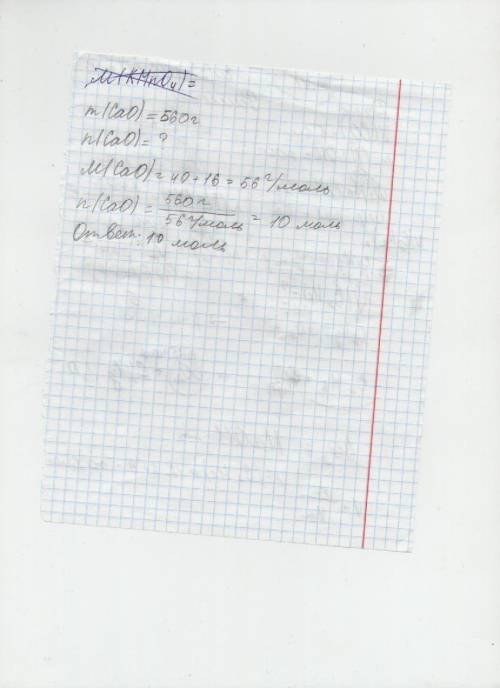 M(KMnO4)=
m(CaO)=560г
n(CaO)=?
M(CaO)=40+16=56г/моль
n(CaO)=560г/56г/моль=10 моль
Ответ: 10 моль